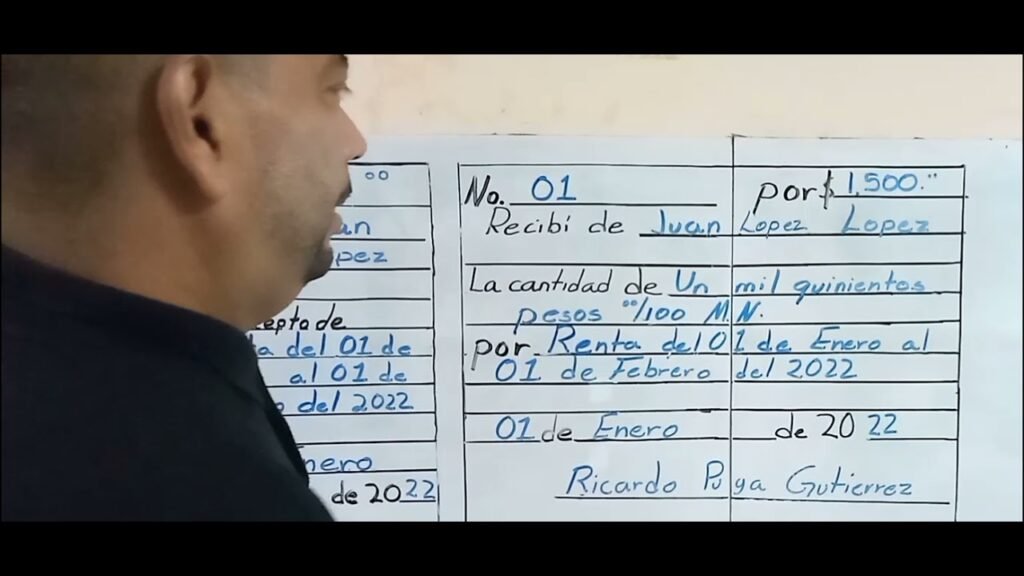 oo
an
pez
cepto de
a del 01 de
al 01 de
o del 2022
nero
de 2022
No. 01 por $ 1,500.°°
Recibí de Juan Lopez Lopez
La cantidad de Un mil quinientos
pesos °°/100 M.N.
por Renta del 01 de Enero al
01 de Febrero del 2022
01 de Enero de 2022
Ricardo Puya Gutierrez